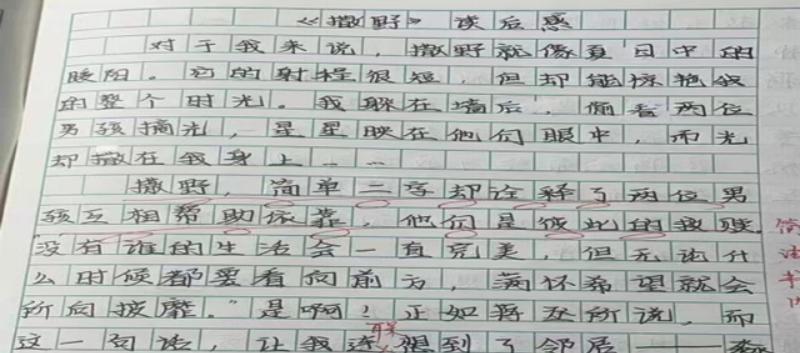 《撒野》读后感
对于我来说，撒野就像夏日中的
暖阳。它的射程很短，但却能惊艳我
的整个时光。我躲在墙后，偷看两位
男孩摘光，星星映在他们眼中，而光
却撒在我身上……
撒野，简单二字却诠释了两位男
孩互相帮助依靠，他们是彼此的救赎。
没有谁的生活会一直完美，但无论什
么时候都要看向前方，满怀希望就会
所向披靡。"是啊！正如蒋丞所说，而
这一句话，让我连想到了邻居——
联
简